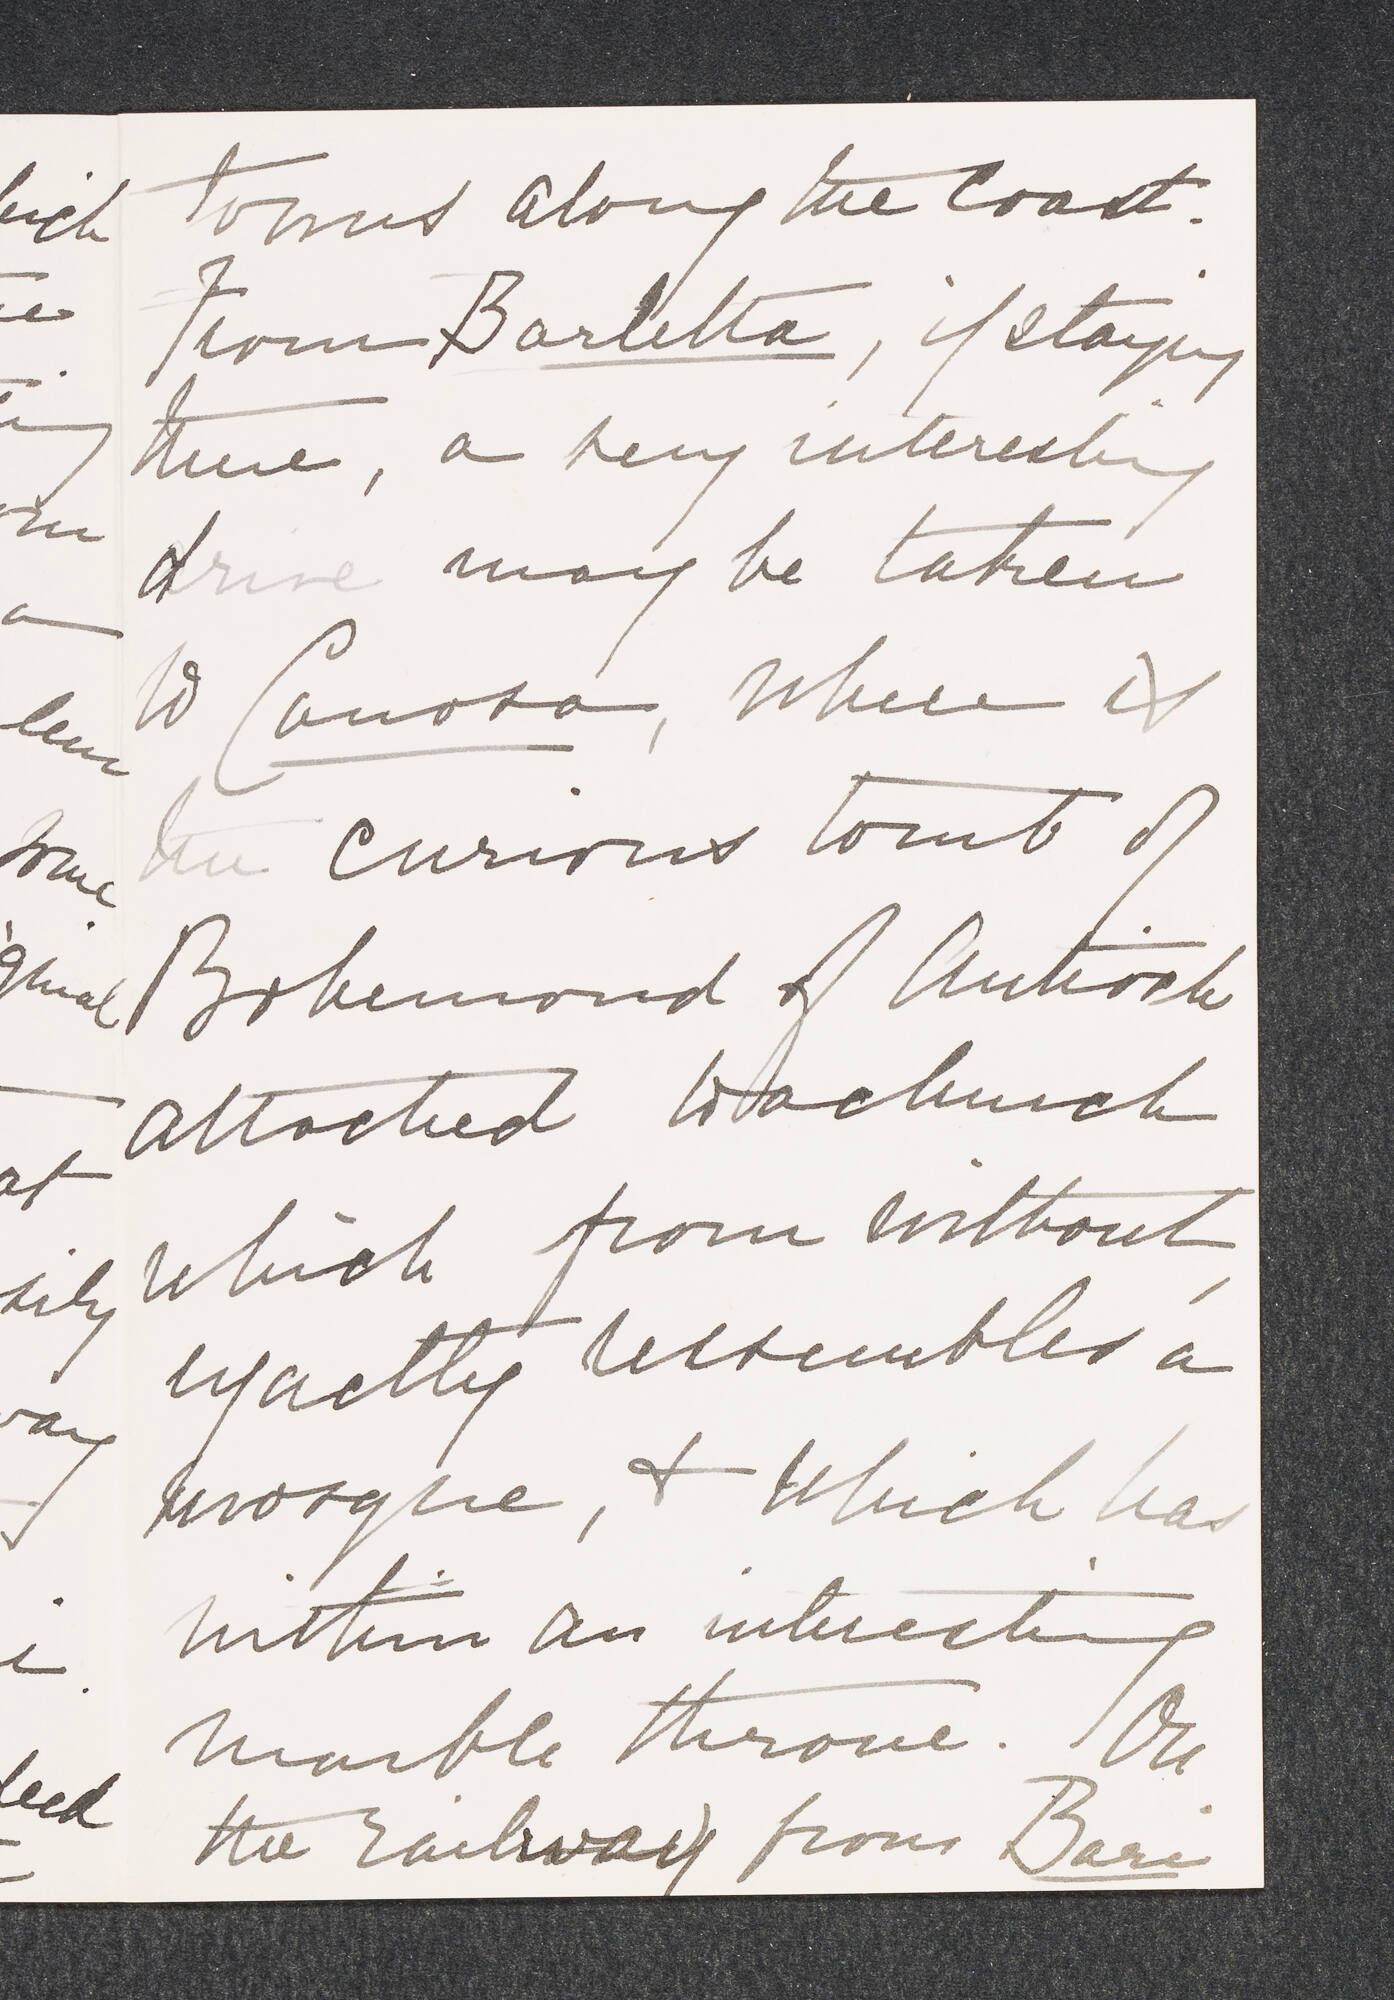 towns along the coast.
From Barletta, if staying
there, a very interesting
drive may be taken
to Canosa, where is
the curious tomb of
Bohemond of Antioch
attached to a church
which from without,
exactly resembles a
mosque, & which has
within an interesting
marble throne. On
the railway from Bari